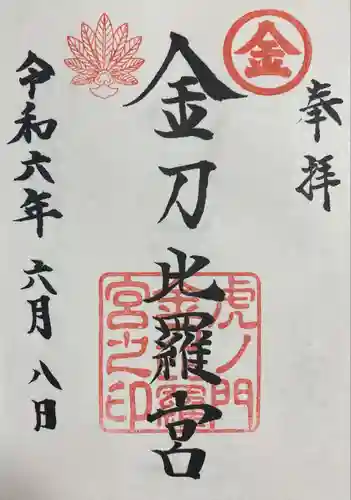 奉拝
金
金刀比羅宮
虎ノ門
金刀比羅
宮之印
令和六年 六月 八日